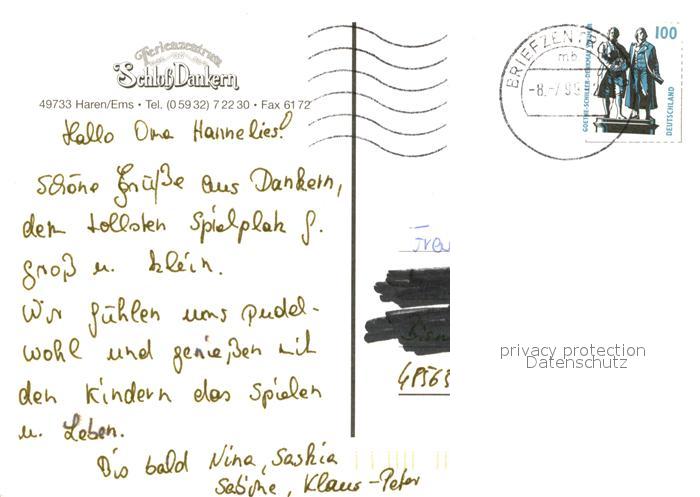 Ferienzentrum
Schloß Dankern
49733 Haren/Ems • Tel. (0 59 32) 7 22 30 • Fax 61 72
Hallo Oma Hannelies!
Schöne Grüße aus Dankern,
dem tollsten Spielplatz f.
groß u. klein.
Wir fühlen uns pudel-
wohl und genießen mit
den Kindern das Spielen
u. Leben.
Bis bald Nina, Saskia
Sabine, Klaus-Peter
BRIEFZENTRUM
mb
-8.-7.98
100
GOETHE-SCHILLER-DENKMAL
DEUTSCHLAND
48565
privacy protection
Datenschutz